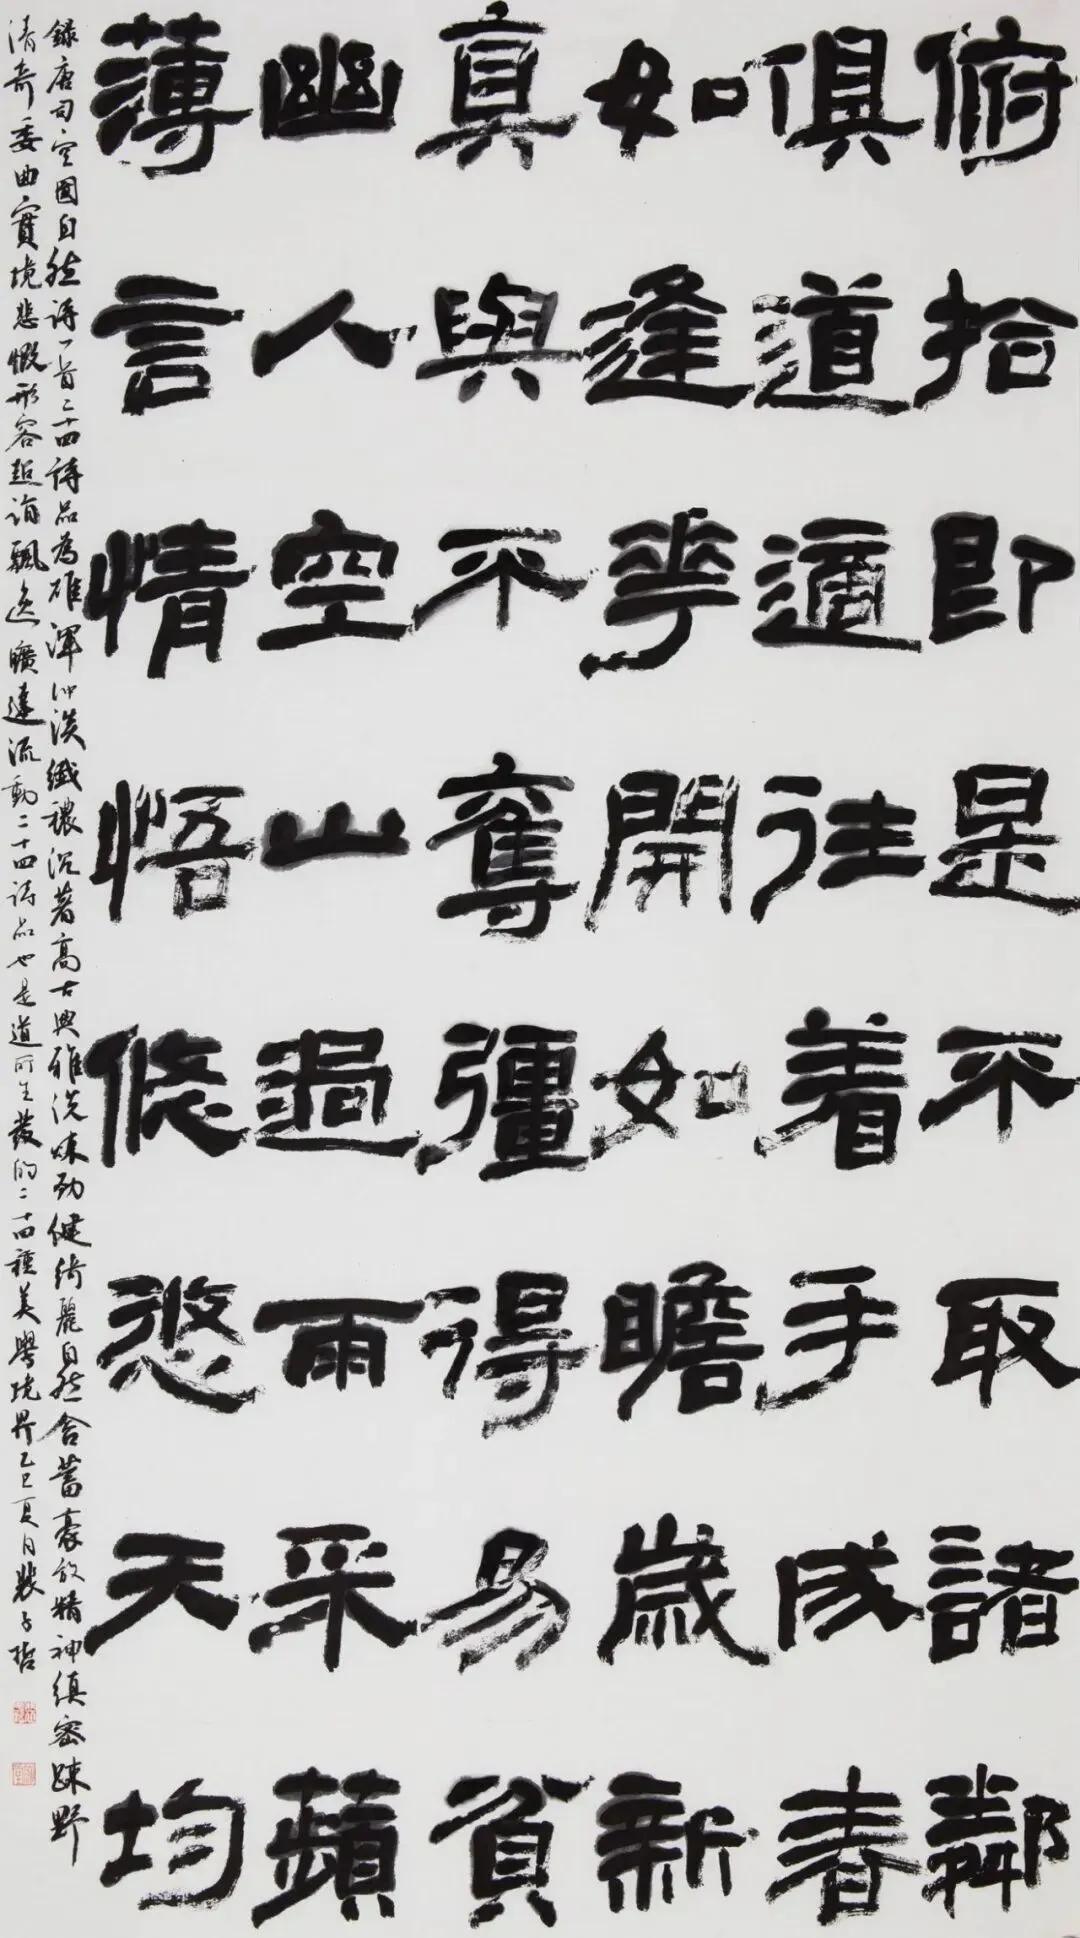 俯拾即是不取諸鄰
俱道適往着手成春
如逢華開如瞻歲新
真與不奪彊得易貧
幽人空山過雨采蘋
薄言情悟悠悠天均
録唐司空圖自然詩一首二十四詩品為雄渾沖淡纖穠沉著高古典雅洗煉勁健綺麗自然含蓄豪放精神縝密疎野
清奇委曲實境悲慨形容超詣飄逸曠達流動二十四詩品也是道所生發的二十四種美學境界乙巳夏日